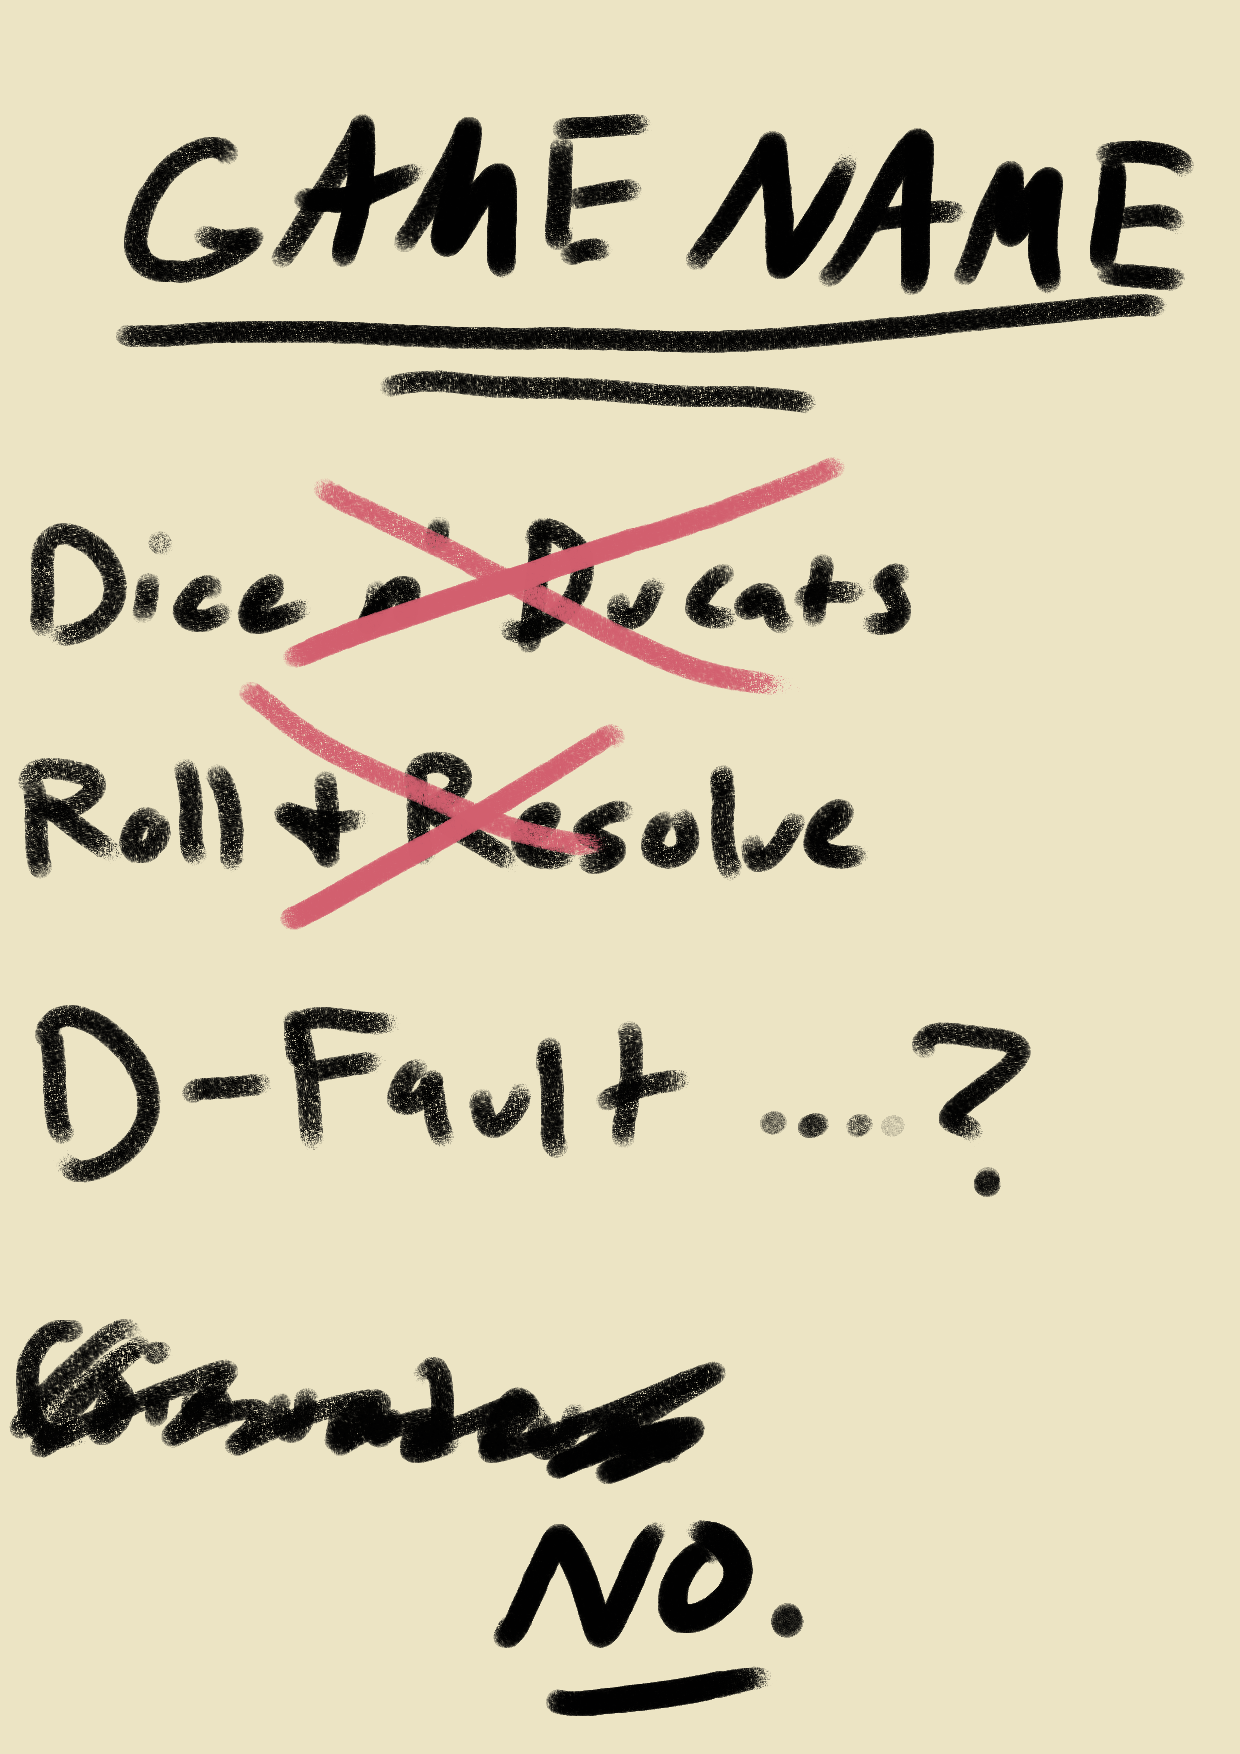 GAME NAME
Dice n' Ducats
Roll + Resolve
D-Fault ....?
NO.